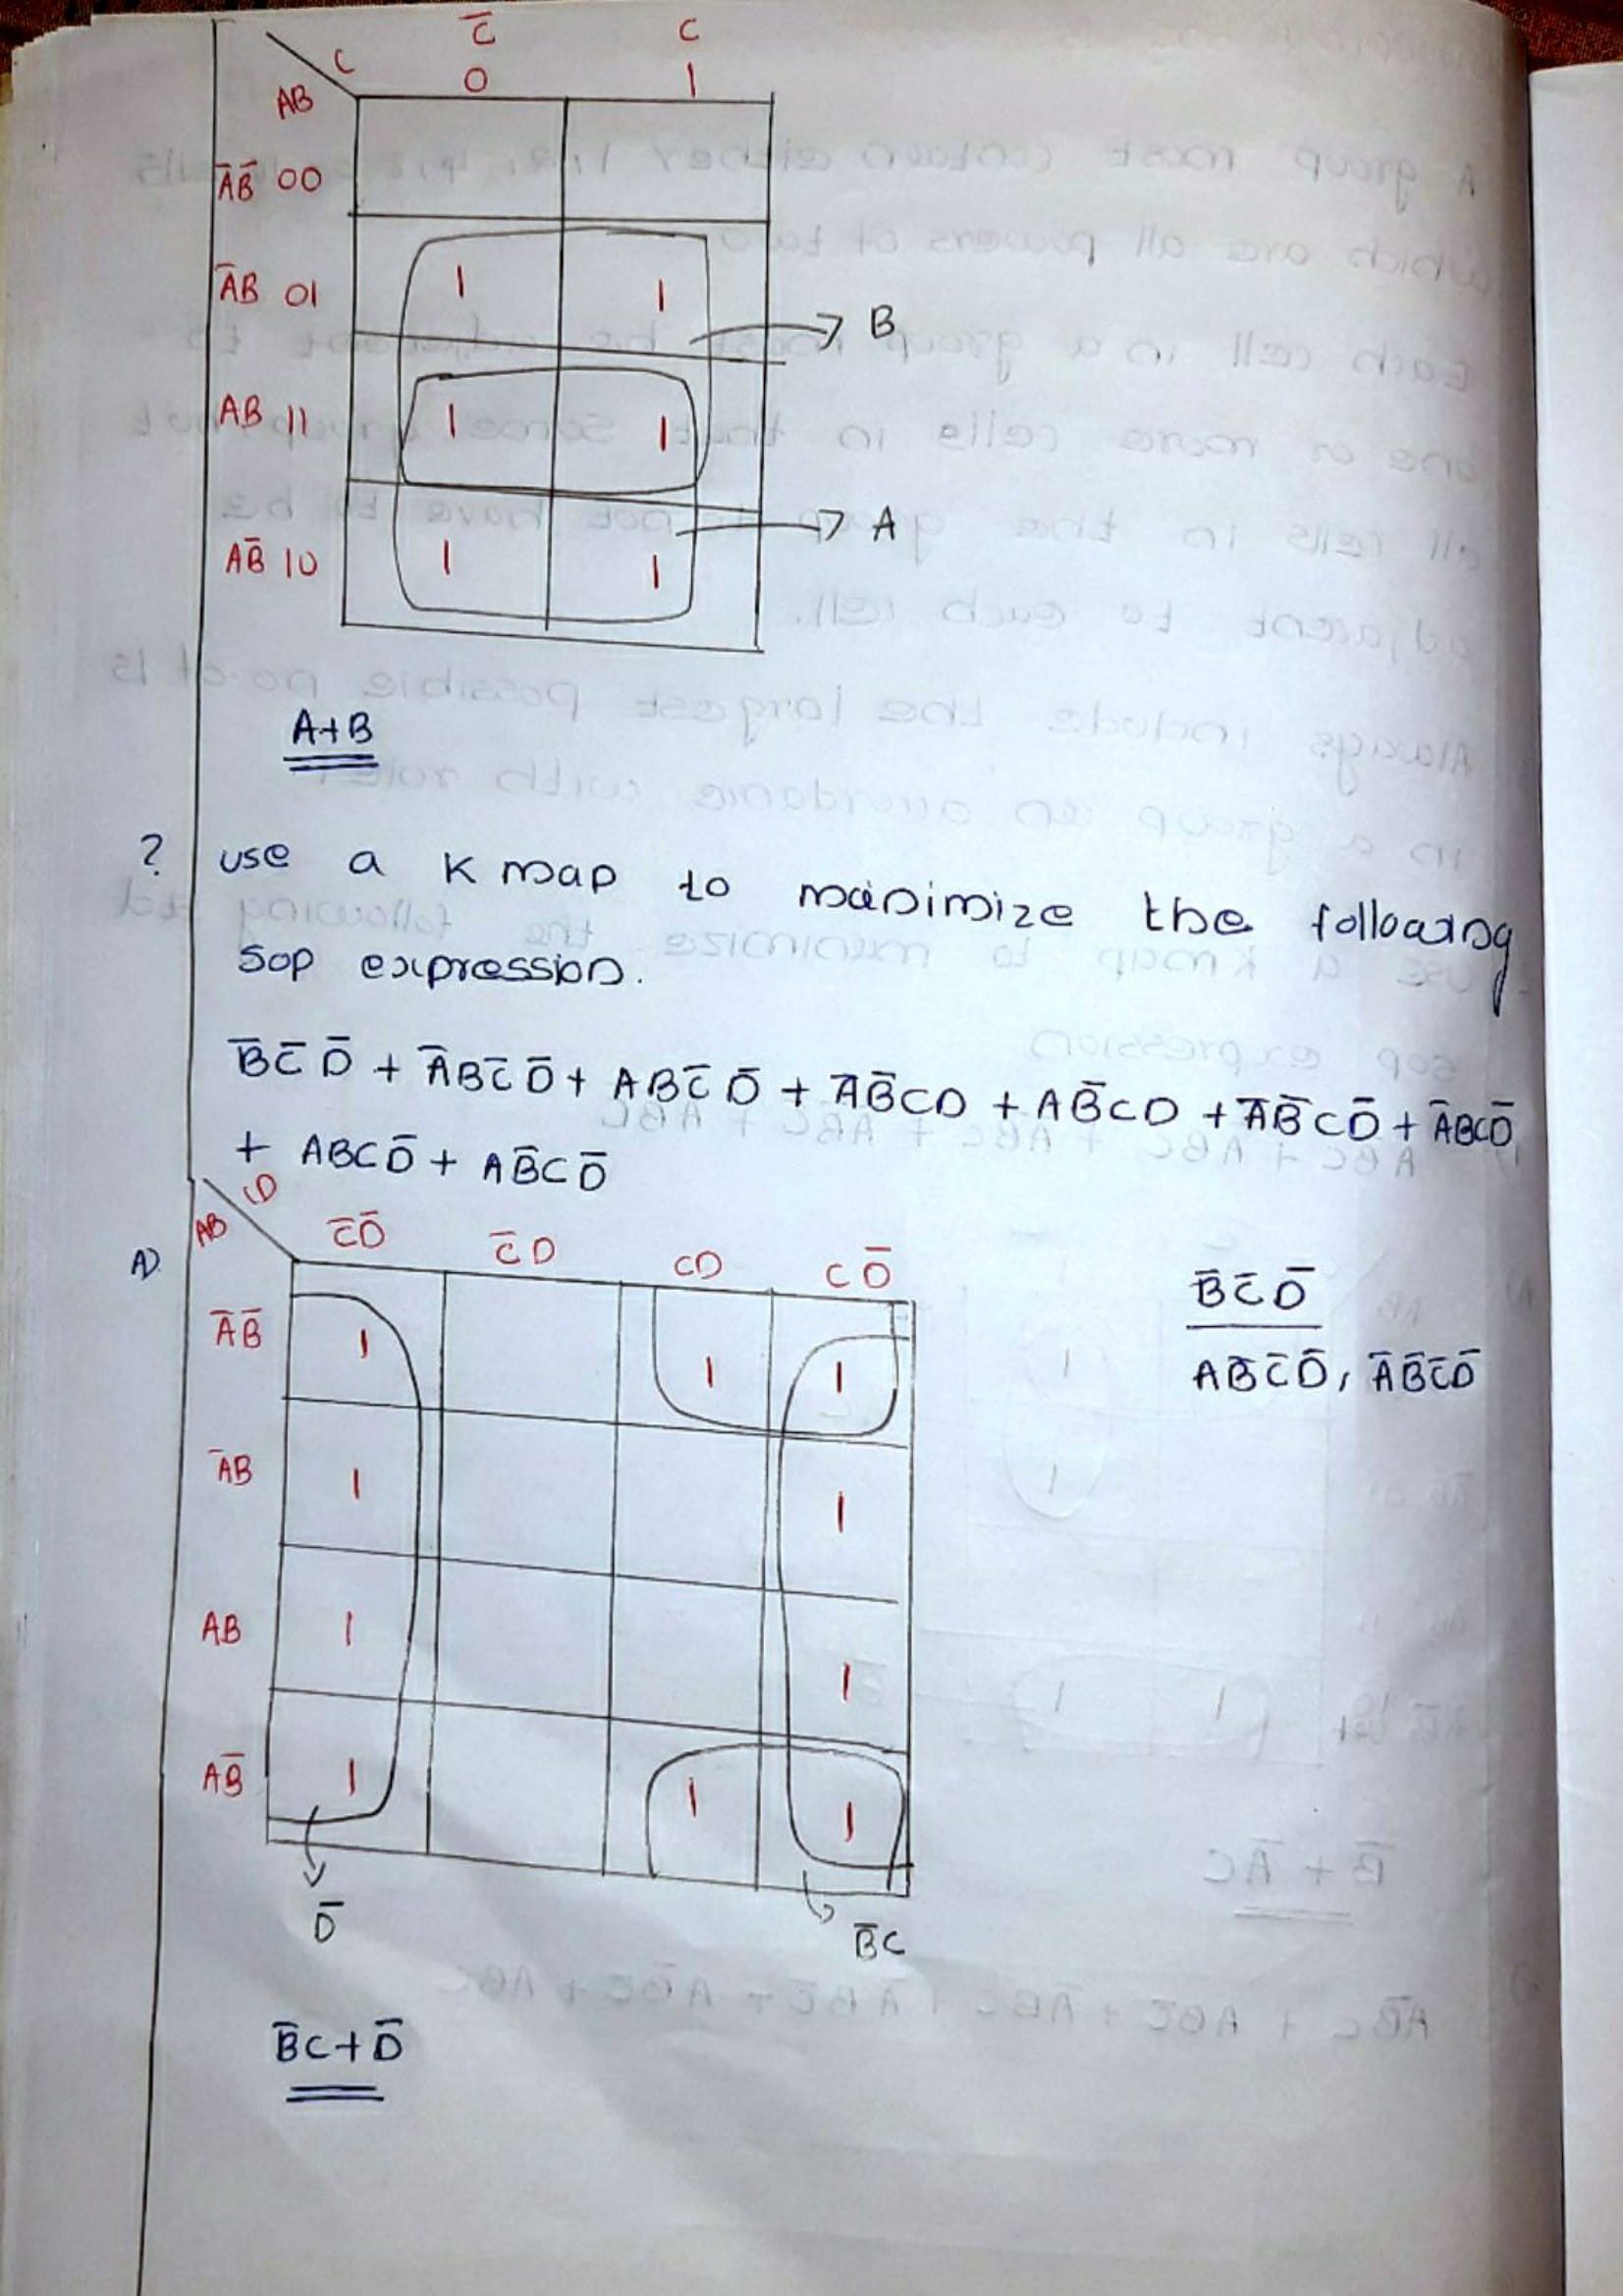 C̅ C
C 0 1
AB
A̅B̅ 00
A̅B 01 1 1
→ B
AB 11 1 1
→ A
AB̅ 10 1 1
A+B
? use a K map to minimize the following
SOP expression.
B̅C̅D̅ + A̅BC̅D̅ + ABC̅D̅ + A̅B̅CD + AB̅CD + A̅B̅CD̅ + A̅BCD̅
+ ABCD̅ + AB̅CD̅
CD
AB C̅D̅ C̅D CD CD̅
A)
B̅C̅D̅
A̅B̅ 1 1 1
AB̅C̅D̅, A̅B̅C̅D̅
A̅B 1 1
AB 1 1
AB̅ 1 1 1
D̅ B̅C
B̅C+D̅